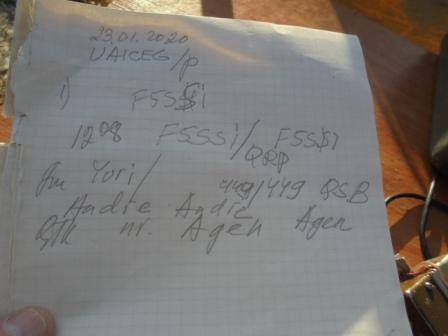 23.01.2020
UA1CEG/p
1) F5SSI
1208 F5SSI/F5SSI
QRP
fm Yuri/449/449 QSB
Andre Andre
Qth nr. Agen Agen